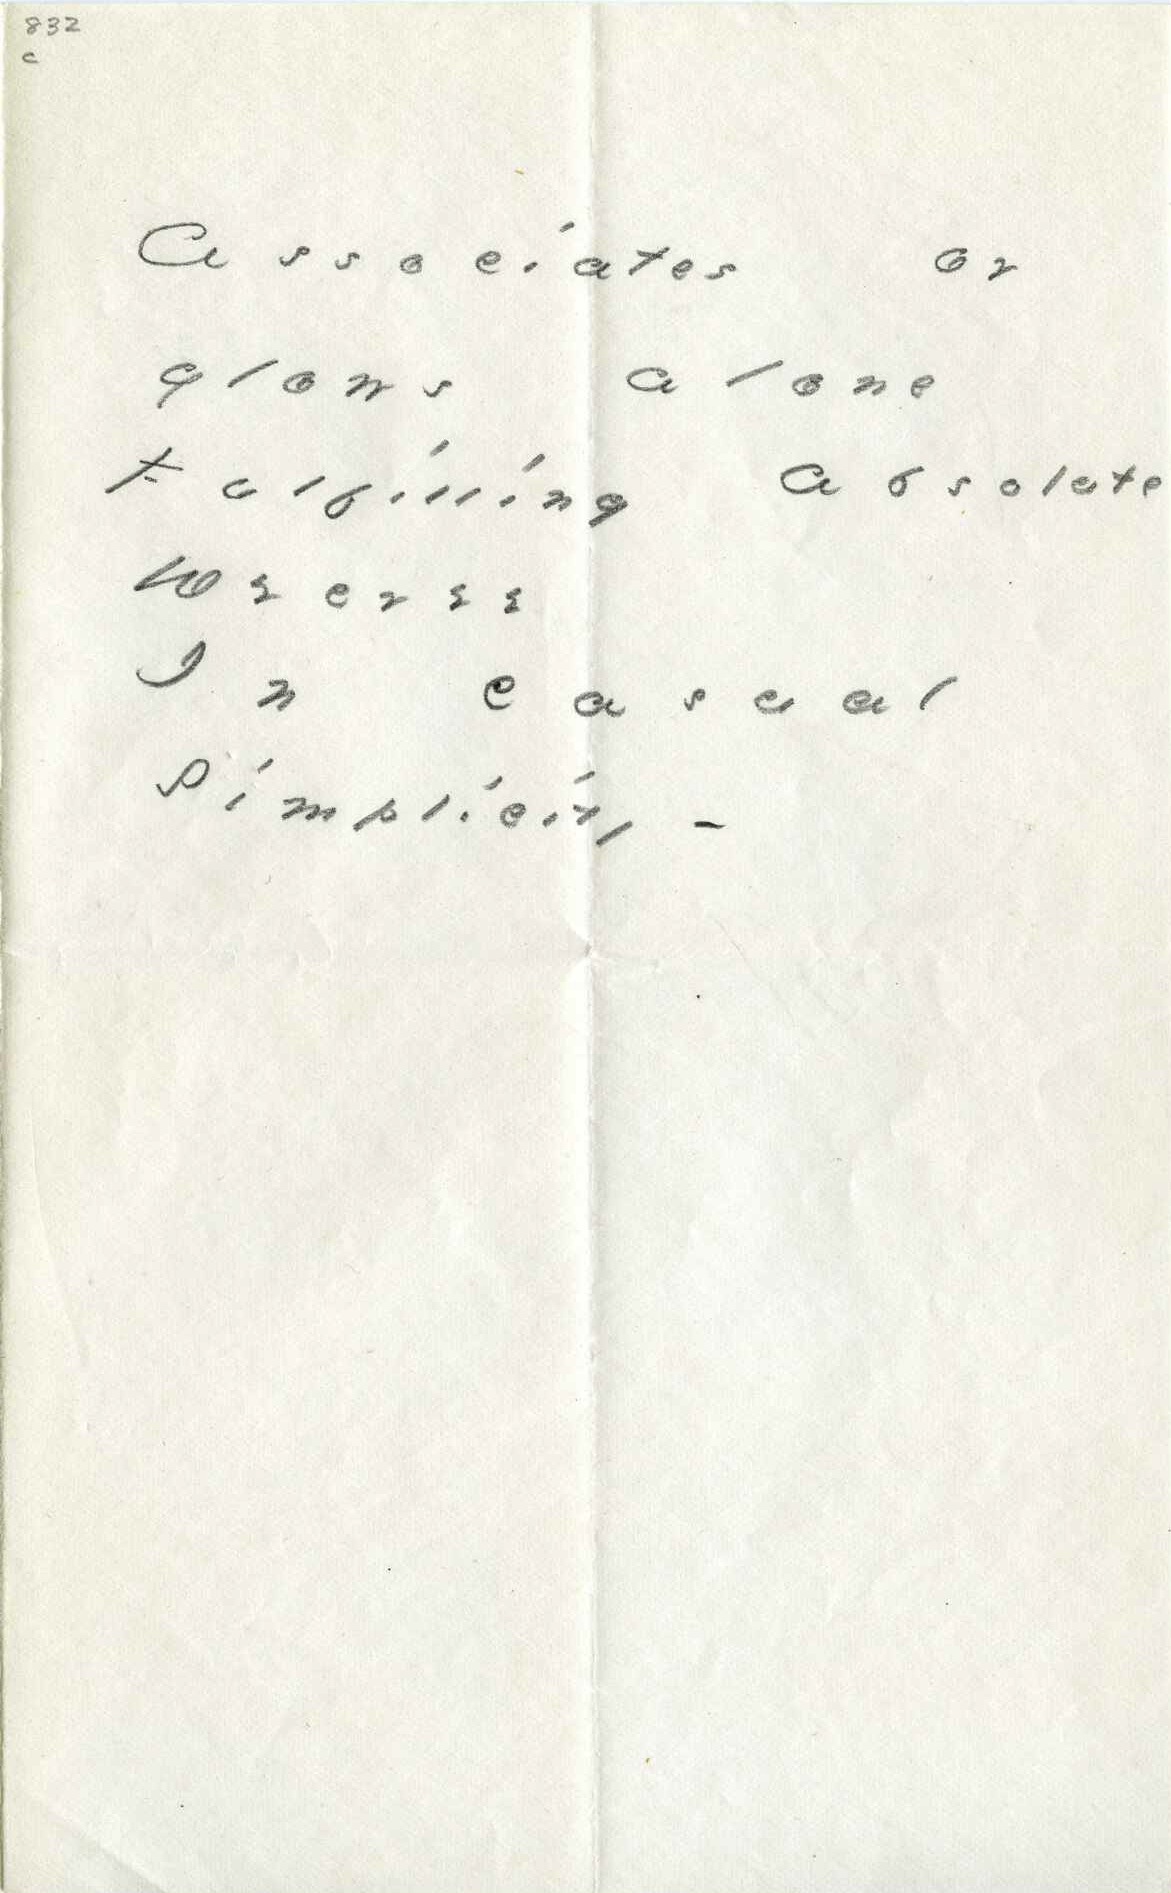 832
c
Associates or
glows alone
Fulfilling absolute
Decree
In casual
simplicity –